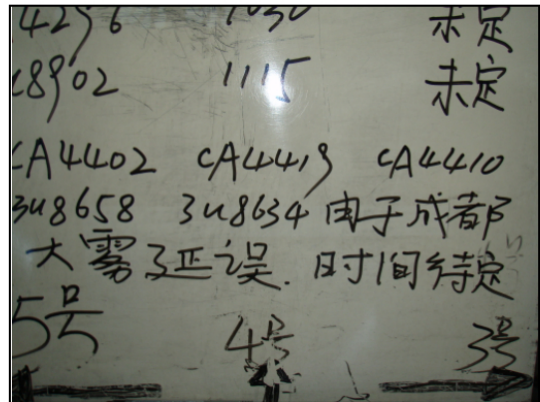 4296 1030 未定
8902 1115 未定
CA4402 CA4419 CA4410
3U8658 3U8634 由于成都
大雾延误.时间待定
5号 4号 3号